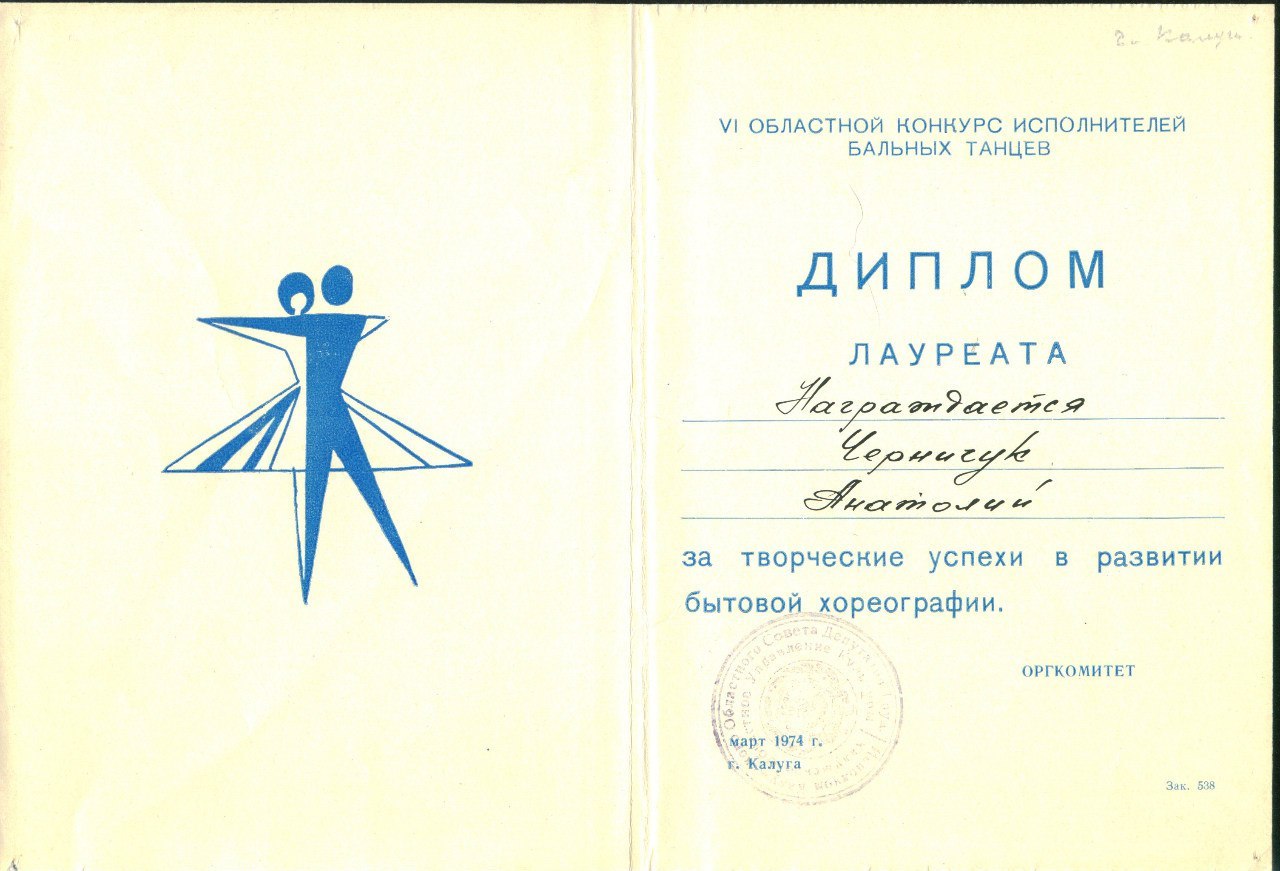 г. Калуг
VI ОБЛАСТНОЙ КОНКУРС ИСПОЛНИТЕЛЕЙ
БАЛЬНЫХ ТАНЦЕВ
ДИПЛОМ
ЛАУРЕАТА
Награждается
Черничук
Анатолий
за творческие успехи в развитии
бытовой хореографии.
Областного Совета
Управление
ОРГКОМИТЕТ
март 1974 г.
г. Калуга
Зак. 538